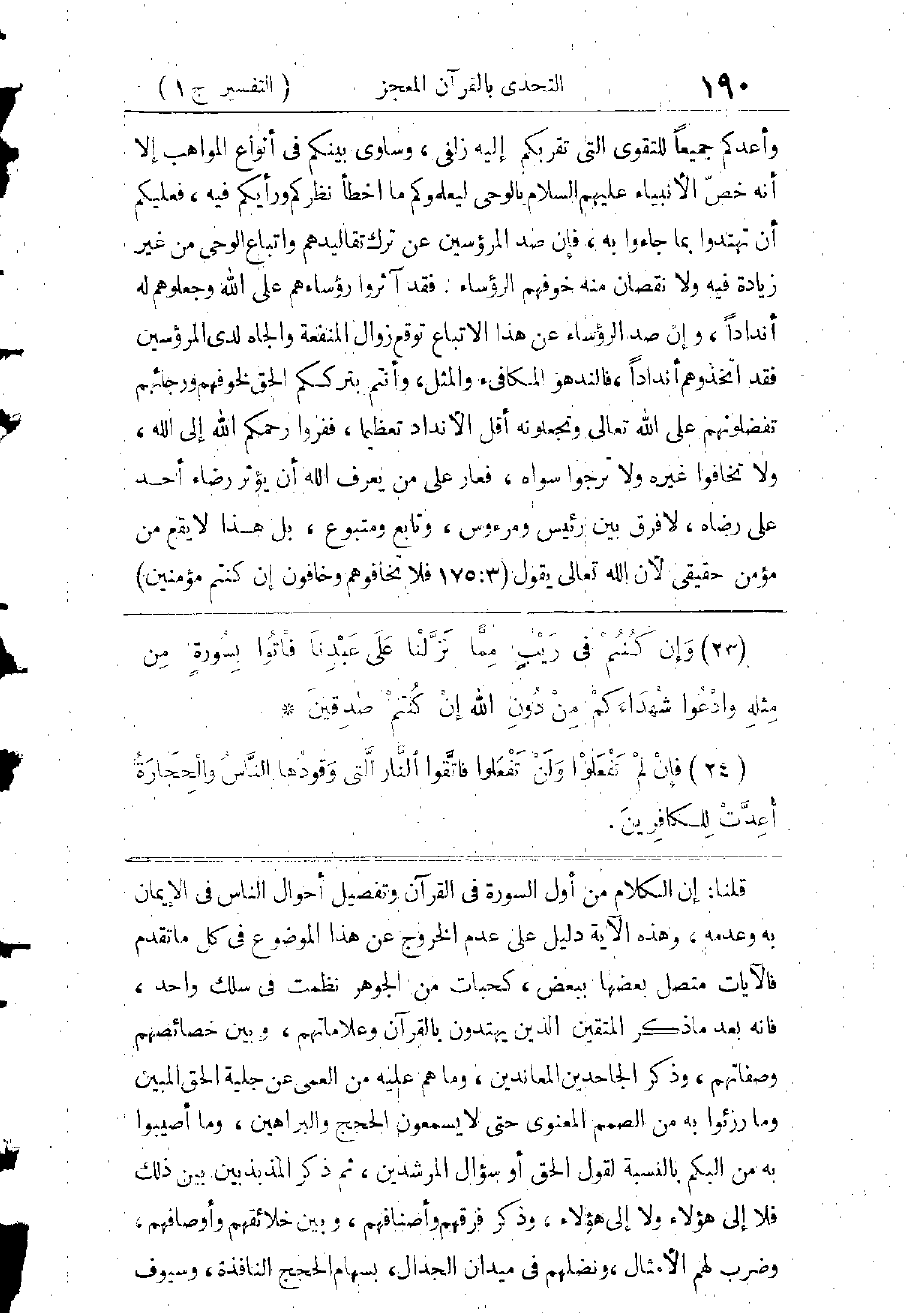 ١٩٠ التحدى بالقرآن المعجز ( التفسير ج ١ )
وأعدكم جميعاً للتقوى التى تقربكم إليه زلفى ، وساوى بينكم فى أنواع المواهب إلا
أنه خصّ الأنبياء عليهم السلام بالوحى ليعلموكم ما اخطأ نظركم ورأيكم فيه ، فعليكم
أن تهتدوا بما جاءوا به ، فإن صد المرؤسين عن ترك تقاليدهم واتباع الوحى من غير
زيادة فيه ولا نقصان منه خوفهم الرؤساء : فقد آثروا رؤساءهم على الله وجعلوهم له
أنداداً ، و إن صد الرؤساء عن هذا الاتباع توقع زوال المنفعة والجاه لدى المرؤسين
فقد اتخذوهم أنداداً ، فالندهو المكافىء والمثل ، وأنتم بترككم الحق لخوفهم ورجائهم
تفضلونهم على الله تعالى وتجعلونه أقل الأنداد تعظيما ، ففروا رحمكم الله إلى الله ،
ولا تخافوا غيره ولا ترجوا سواه ، فعار على من يعرف الله أن يؤثر رضاء أحد
على رضاه ، لافرق بين رئيس ومرءوس ، وتابع ومتبوع ، بل هذا لا يقع من
مؤمن حقيقى لأن الله تعالى يقول (٣:١٧٥ فلا تخافوهم وخافون إن كنتم مؤمنين)
(٢٣) وَإِن كُنْتُمْ فِى رَيْبٍ مِمَّا نَزَّلْنَا عَلَى عَبْدِنَا فَأْتُوا بِسُورَةٍ مِن
مِثْلِهِ وادْعُوا شُهَدَاءَكمْ مِنْ دُونِ اللهِ إِنْ كُنْتمْ صٰدِقِينَ *
(٢٤) فَإِنْ لَمْ تَفْعَلُوْا وَلَنْ تَفْعَلوا فاتَّقُوا ٱلنَّار الَّتِى وَقودُها النَّاسُ والْحِجَارَةُ
أُعِدَّتْ لِلْكافِرِينَ .
قلنا: إن الكلام من أول السورة فى القرآن وتفصيل أحوال الناس فى الإيمان
به وعدمه ، وهذه الآية دليل على عدم الخروج عن هذا الموضوع فى كل ماتقدم
فالآيات متصل بعضها ببعض ، كحبات من الجوهر نظمت فى سلك واحد ،
فانه بعد ماذكر المتقين الذين يهتدون بالقرآن وعلاماتهم ، و بين خصائصهم
وصفاتهم ، وذكر الجاحدين المعاندين ، وما هم عليه من العمى عن جلية الحق المبين
وما رزئوا به من الصمم المعنوى حتى لايسمعون الحجج والبراهين ، وما أصيبوا
به من البكم بالنسبة لقول الحق أو سؤال المرشدين ، ثم ذكر المذبذبين بين ذلك
فلا إلى هؤلاء ولا إلى هؤلاء ، وذكر فرقهم وأصنافهم ، و بين خلائقهم وأوصافهم ،
وضرب لهم الأمثال ، ونضلهم فى ميدان الجدال، بسهام الحجج النافذة ، وسيوف